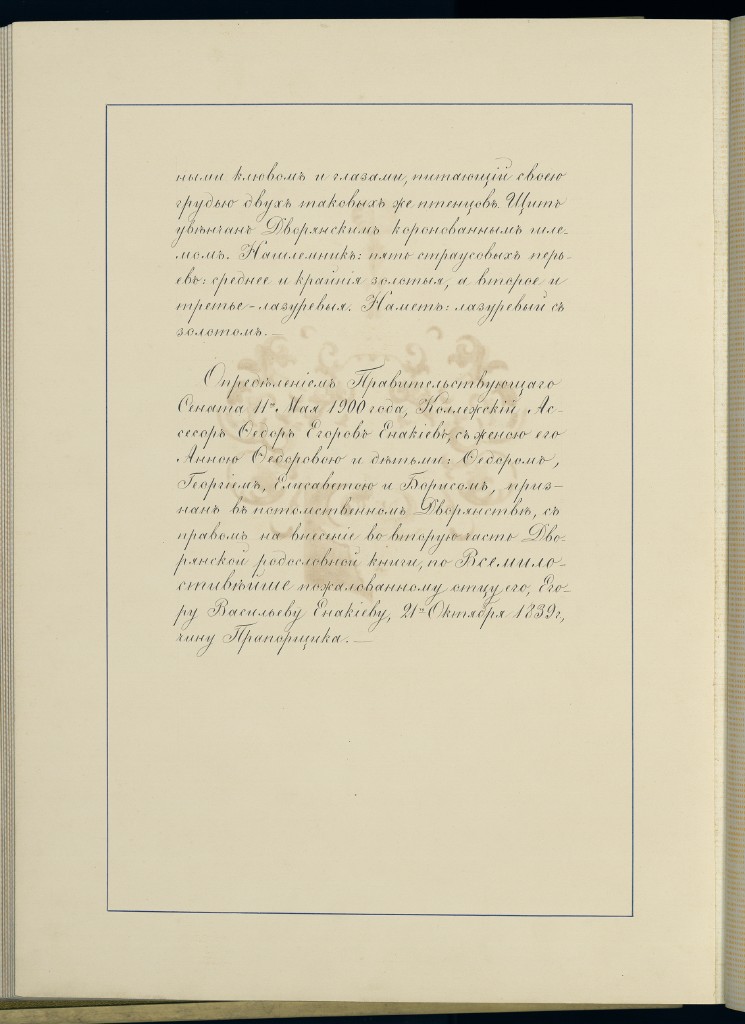 ными клювомъ и глазами, питающій своею
грудью двухъ таковыхъ же птенцовъ. Щитъ
увѣнчанъ Дворянскимъ коронованнымъ шле-
момъ. Нашлемникъ: пять страусовыхъ перь-
евъ: среднее и крайнія золотыя, а второе и
третье - лазуревыя. Наметъ: лазуревый съ
золотомъ. —
Опредѣленіемъ Правительствующаго
Сената 11го Мая 1900 года, Коллежскій Ас-
сесоръ Ѳедоръ Егоровъ Енакіевъ, съ женою его
Анною Ѳедоровою и дѣтьми: Ѳедоромъ,
Георгіемъ, Елисаветою и Борисомъ, приз-
нанъ въ потомственномъ Дворянствѣ, съ
правомъ на внесеніе во вторую часть Дво-
рянской родословной книги, по Всемило-
стивѣйше пожалованному отцу его, Его-
ру Васильеву Енакіеву, 21го Октября 1839 г,
чину Прапорщика. —